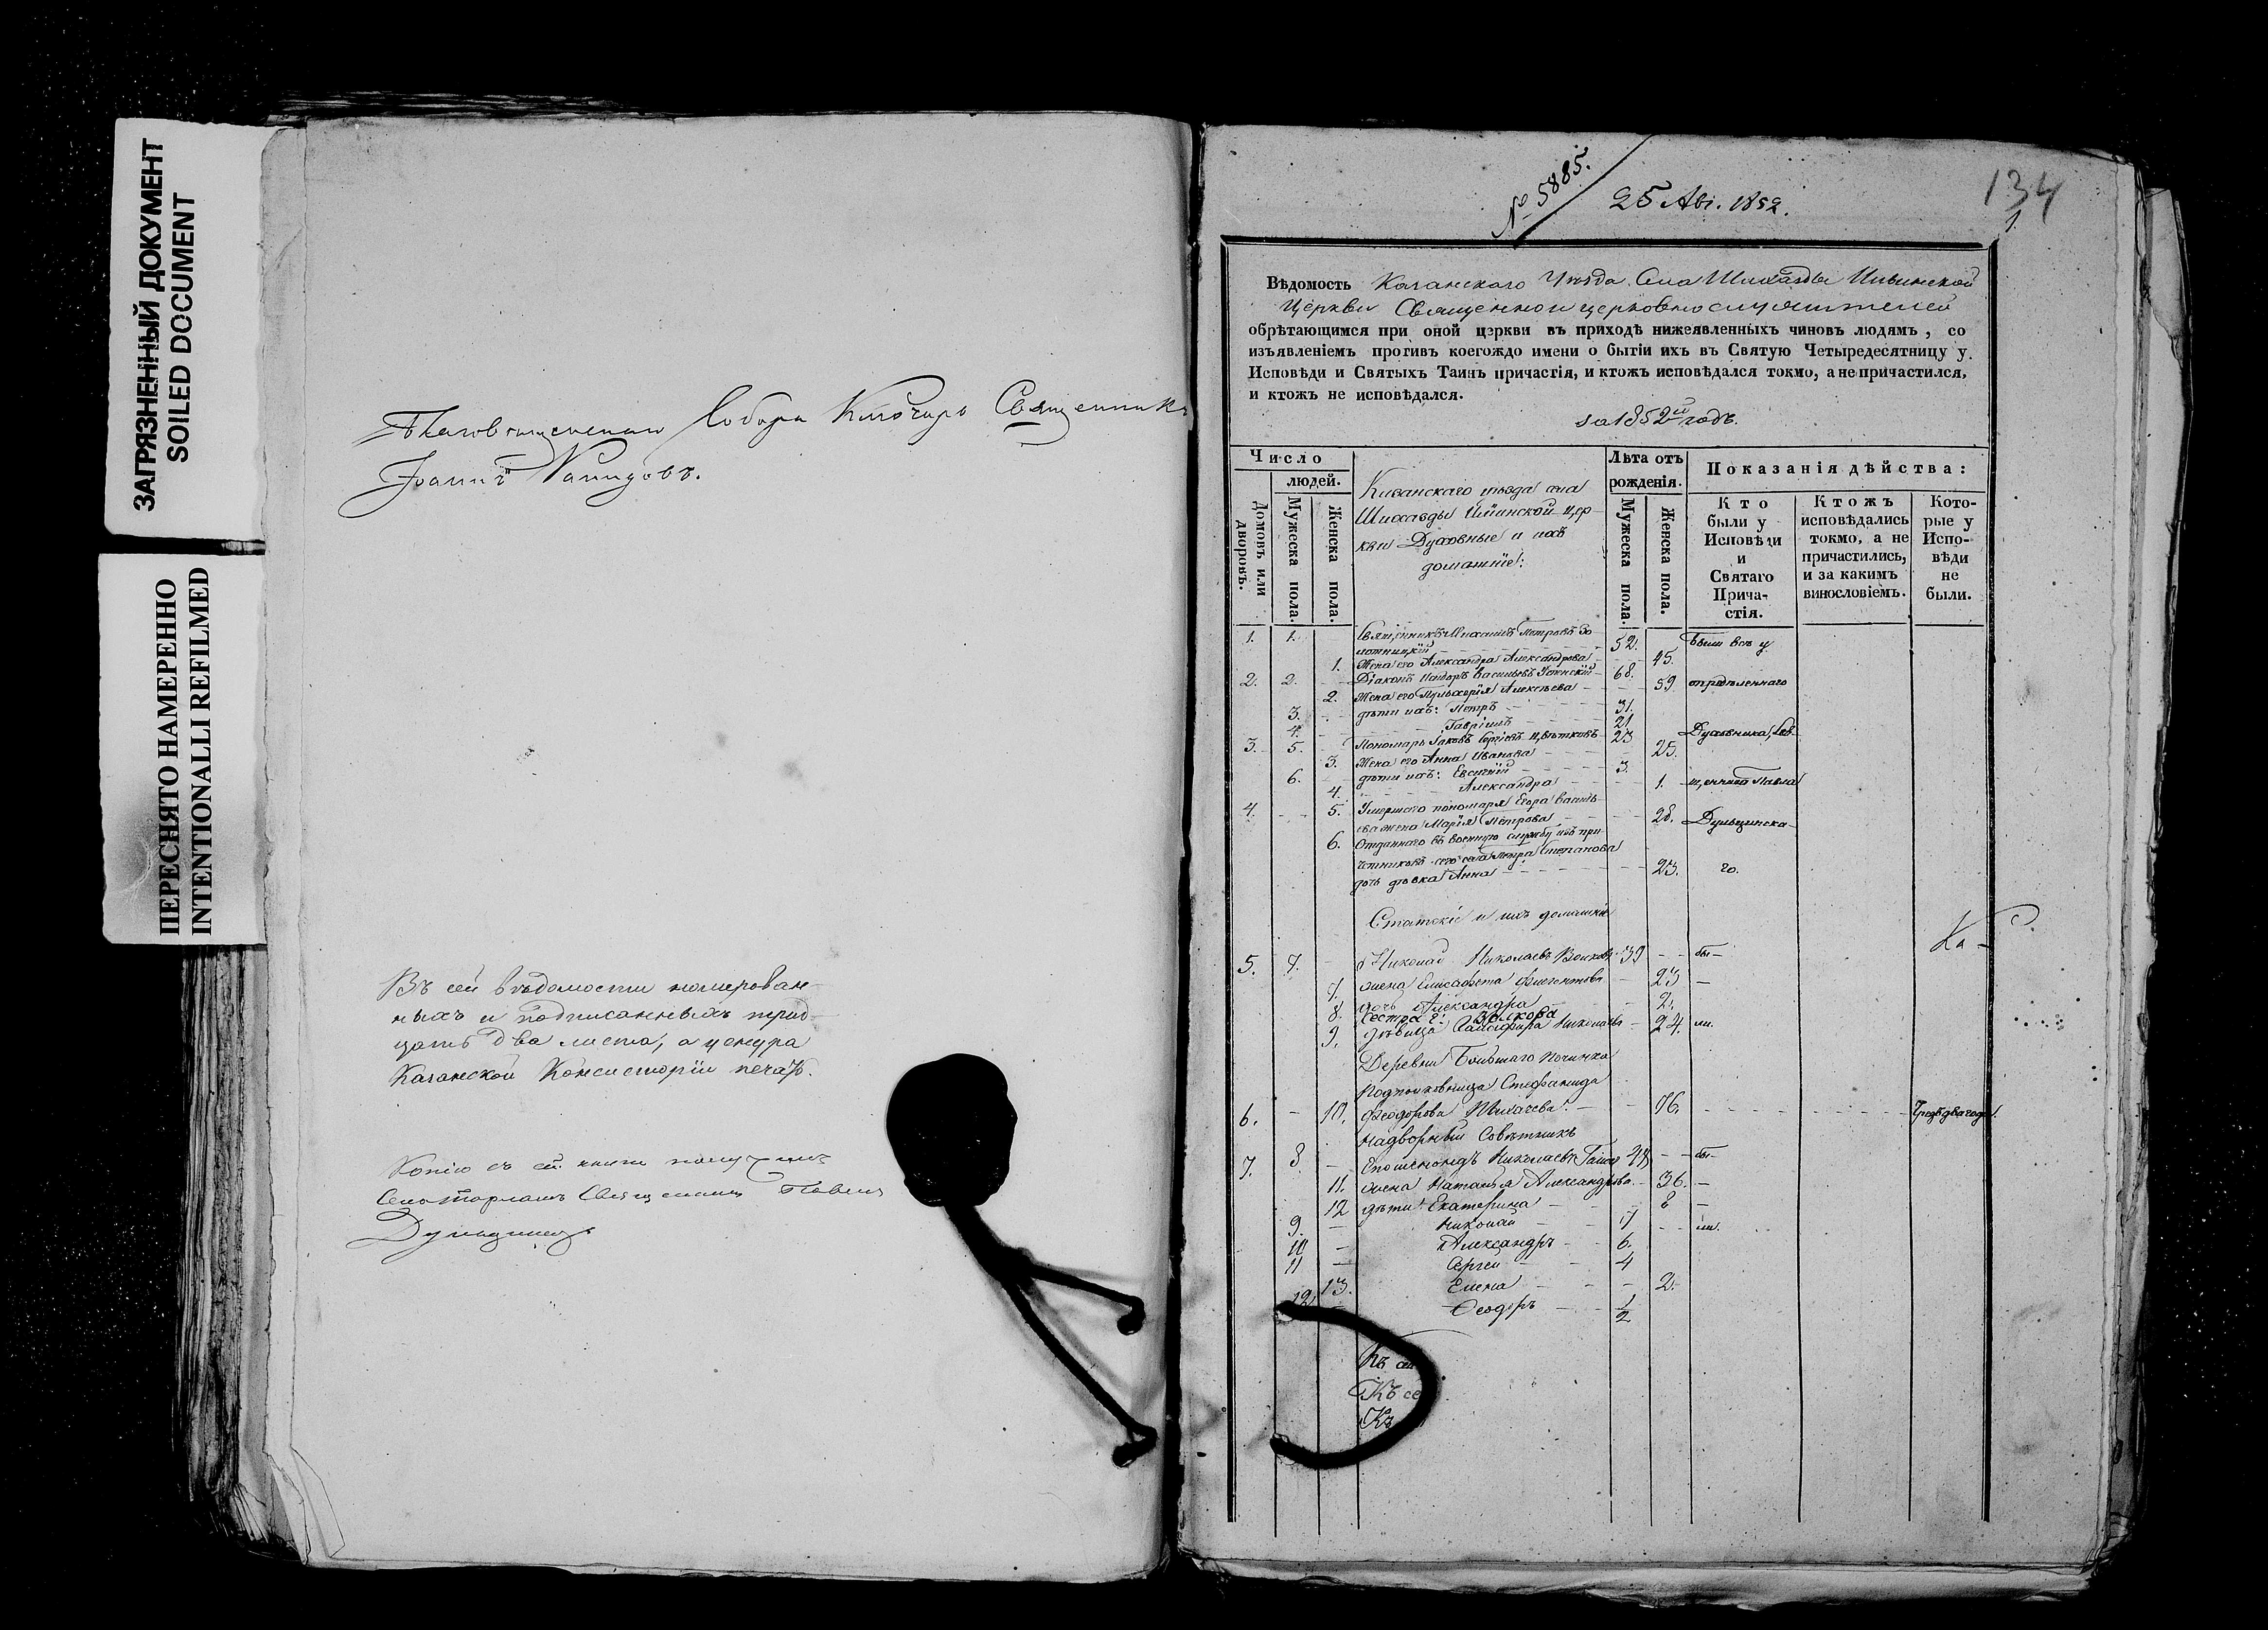 ЗАГРЯЗНЕННЫЙ ДОКУМЕНТ
SOILED DOCUMENT
ПЕРЕСНЯТО НАМЕРЕННО
INTENTIONALLI REFILMED
Благовѣщенскаго Собора Ключарь Священникъ
Іоаннъ
Въ сей вѣдомости нумерован-
ныхъ и подписанныхъ трид-
цать два листа,
Казанской Консисторіи печать.
Копію съ сей книги получилъ
Священникъ Павелъ
№ 5885.
25 Авг. 1852.
134
1.
Вѣдомость Казанскаго Уѣзда Села Шигазды Ильинской
Церкви Священно и церковнослужителей
обрѣтающимся при оной цэркви въ приходѣ нижеявленныхъ чиновъ людямъ, со
изъявленіемъ противъ коегождо имени о бытіи ихъ въ Святую Четыредесятницу у
Исповѣди и Святыхъ Таинъ причастія, и ктожъ исповѣдался токмо, а не причастился,
и ктожъ не исповѣдался.
за 1852й годъ.
Число
людей.
Домовъ или дворовъ.
Мужеска пола.
Женска пола.
Казанскаго уѣзда села
Шигазды Ильинской цер-
кви Духовные и ихъ
домашніе:
Лѣта отъ рожденія.
Мужеска пола.
Женска пола.
Показанія дѣйства:
Кто были у Исповѣди и Святаго Прича-стія.
Ктожъ исповѣдались токмо, а не причастились, и за какимъ винословіемъ.
Кото-рые у Испо-вѣди не были.
1. 1. Священникъ Михаилъ Петровъ Зо-
лотницкій 52. Были всѣ у
1. Жена его Александра Александрова 45.
2. 2. Діаконъ Васильевъ 68.
2. Жена его Пульхерія Алексѣева 59 опредѣленнаго
3. дѣти ихъ: Петръ 31.
4. Гавріилъ 21
3. 5. Пономарь Іаковъ Сергіевъ Цвѣтковъ 23 Духовника, Свя-
3. Жена его Анна Иванова 25.
6. дѣти ихъ: Евгеній 3.
4. Александра 1. щенника Павла
4. 5. Умершаго пономаря Егора Василь-
ева жена Марія Петрова 28.
6. Отданнаго въ военную службу изъ при-
четниковъ сего села Петра Степанова
дочь дѣвка Анна 23. го.
Статскіе и ихъ домашніе
Ка-
5. 7. Николай Николаевъ 39 бы-
7. жена Елисафета 23
8. дочь Александра 2.
сестра Волкова
9. дѣвица Николаева 24. ли.
Деревни Большаго Починка
Подполковница Стефанида
6. 10. Феодорова Лихачева. 76.
Надворный Совѣтникъ
7. 8. Николаевъ бы-
11. жена Наталья Александрова 36.
12 дѣти: Екатерина 8
9. Николай 7 ли.
10 Александръ 6.
11 Сергей 4
13. Елена 2.
12 Феодоръ 1/2
Къ
Къ се
Къ